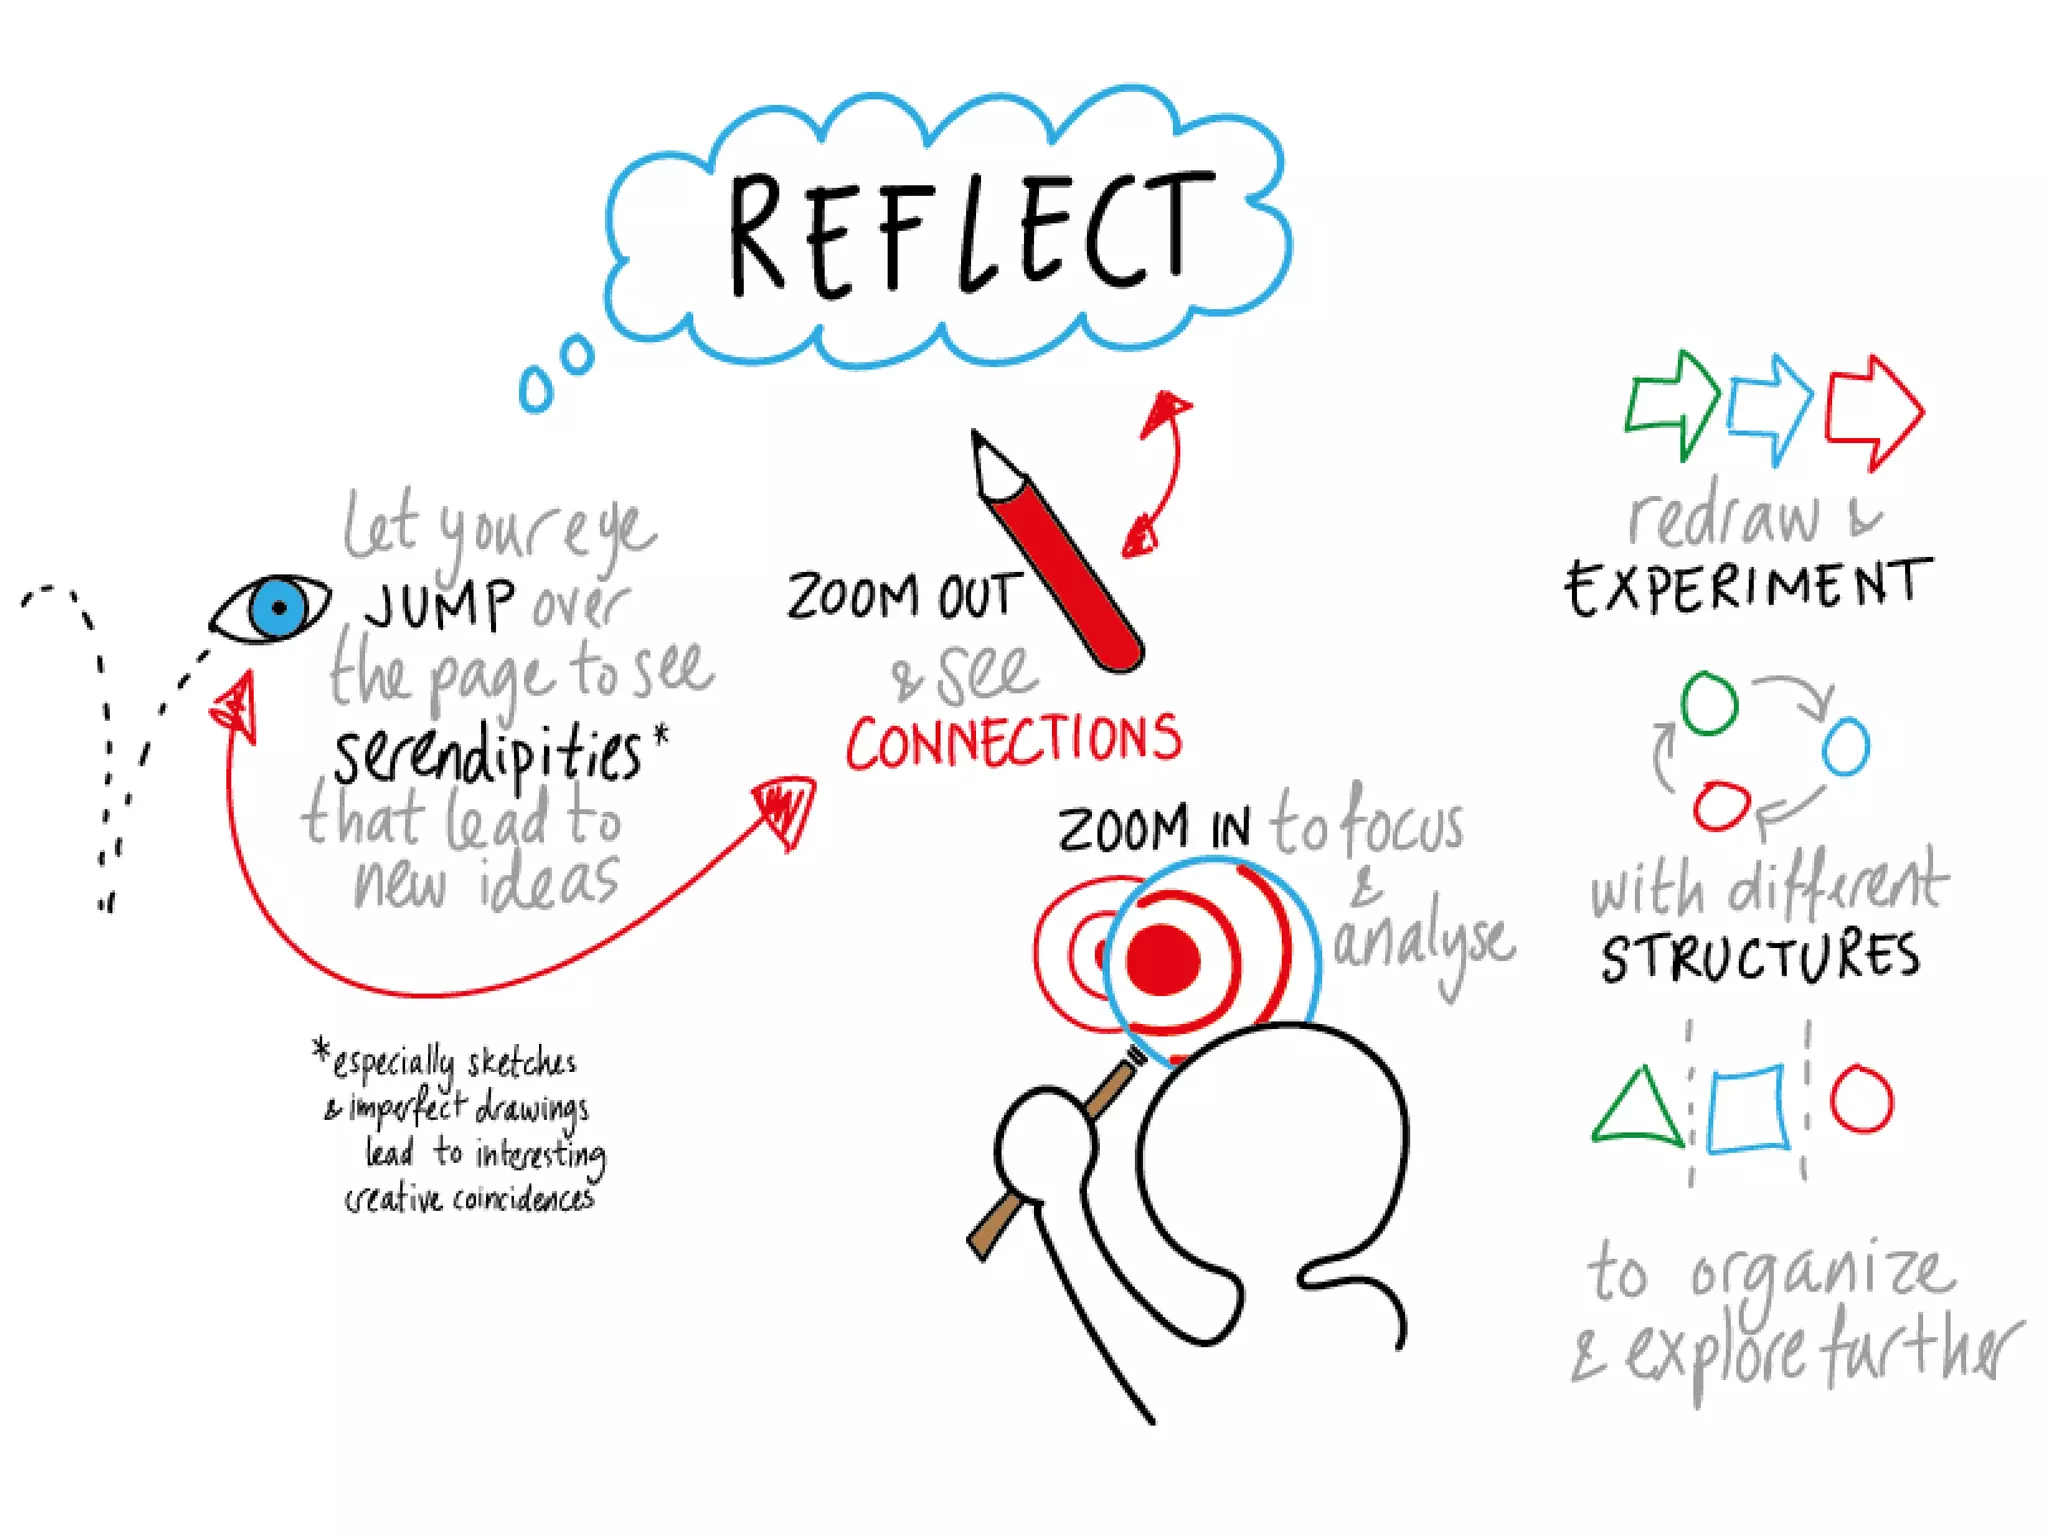 REFLECT
let your eye
JUMP over
the page to see
serendipities*
that lead to
new ideas
*especially sketches
& imperfect drawings
lead to interesting
creative coincidences
ZOOM OUT
& see
CONNECTIONS
ZOOM IN to focus
&
analyse
redraw &
EXPERIMENT
with different
STRUCTURES
to organize
& explore further